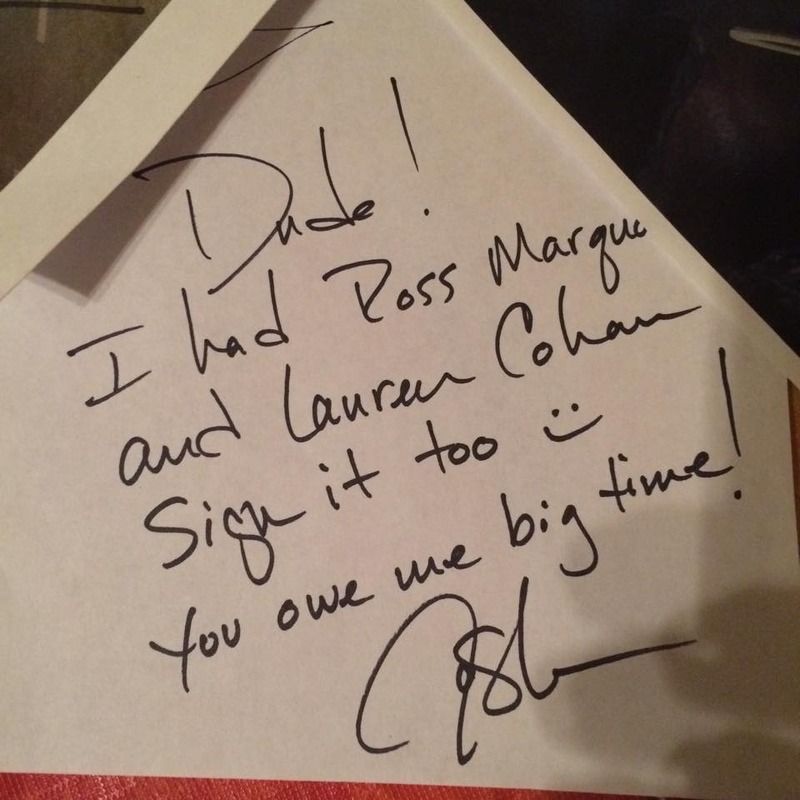 Dude!
I had Ross Marqua
and Lauren Cohan
Sign it too :)
You owe me big time!
Josh